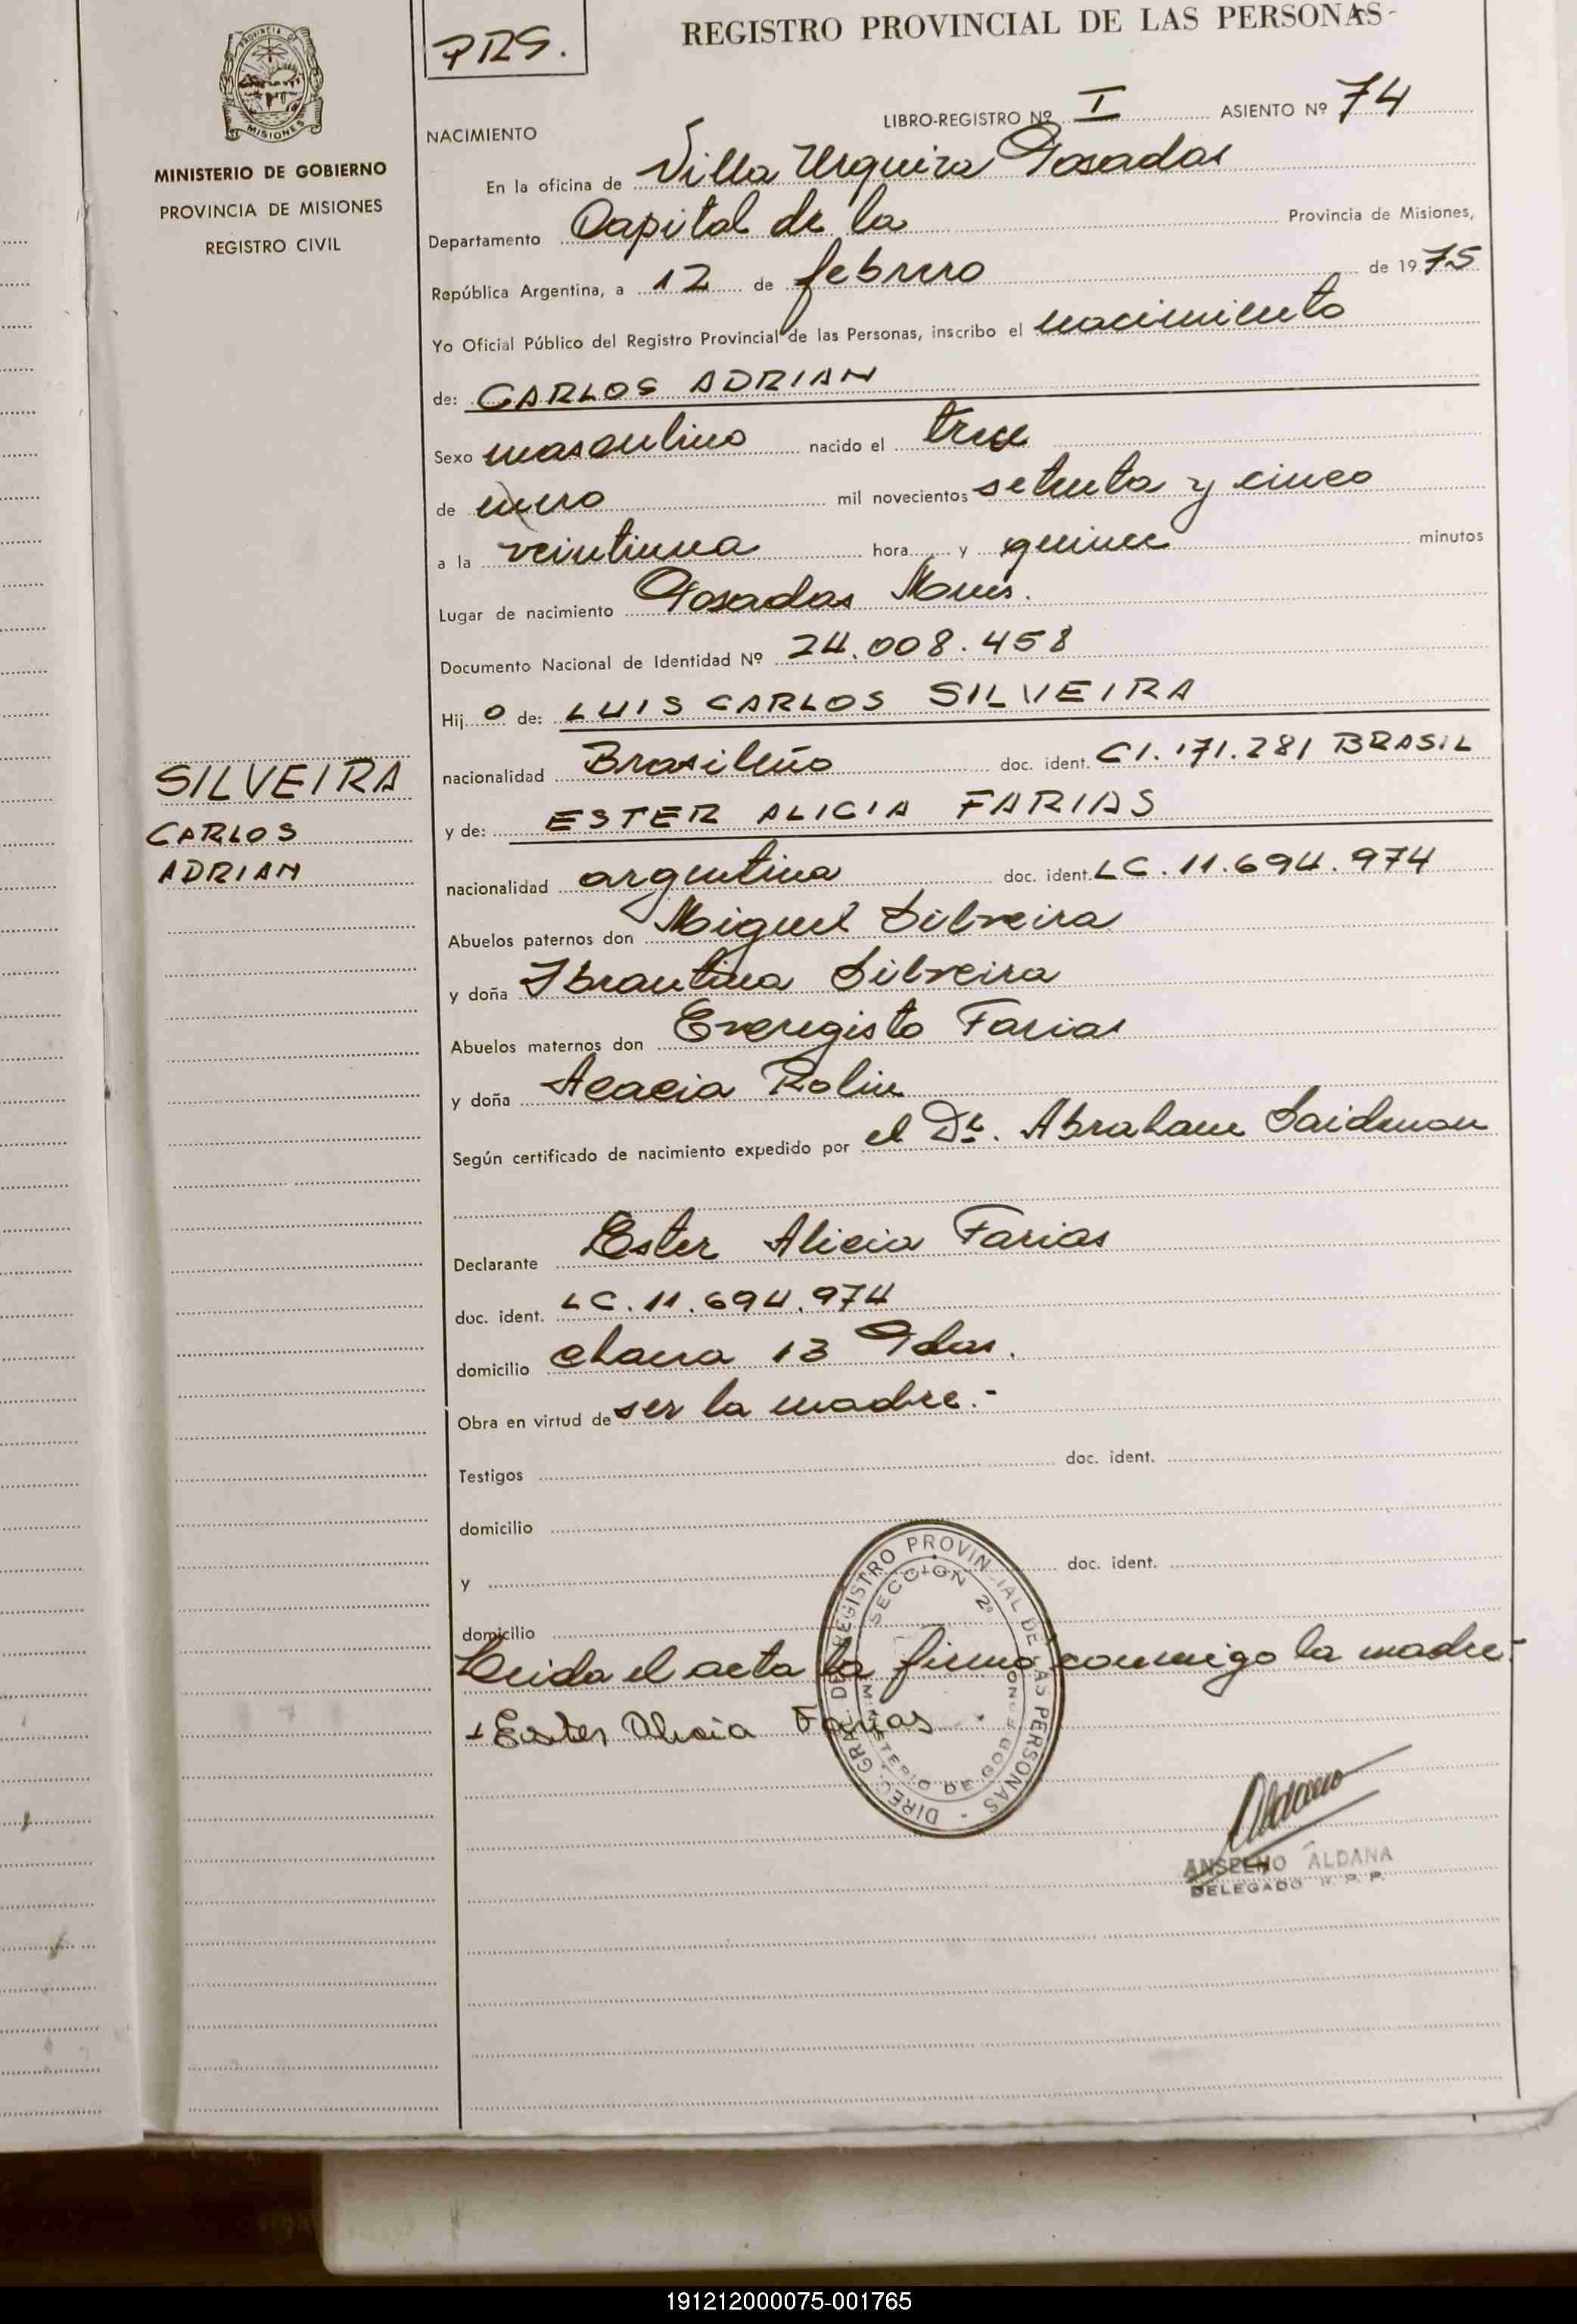 PRS.
REGISTRO PROVINCIAL DE LAS PERSONAS-
PROVINCIA DE
MISIONES
MINISTERIO DE GOBIERNO
PROVINCIA DE MISIONES
REGISTRO CIVIL
NACIMIENTO
LIBRO-REGISTRO Nº I ASIENTO Nº 74
En la oficina de Villa Urquiza Posadas
Departamento Capital de la Provincia de Misiones,
República Argentina, a 12 de febrero de 1975
Yo Oficial Público del Registro Provincial de las Personas, inscribo el nacimiento
de: CARLOS ADRIAN
Sexo masculino nacido el trece
de enero mil novecientos setenta y cinco
a la veintiuna hora y quince minutos
Lugar de nacimiento Posadas Mnes.
Documento Nacional de Identidad Nº 24.008.458
Hijo de: LUIS CARLOS SILVEIRA
nacionalidad Brasileño doc. ident. CI.171.281 BRASIL
SILVEIRA
CARLOS
ADRIAN
y de: ESTER ALICIA FARIAS
nacionalidad argentina doc. ident. LC.11.694.974
Abuelos paternos don Miguel Silveira
y doña Ibrantina Silveira
Abuelos maternos don Everegisto Farias
y doña Acacia Rolin
Según certificado de nacimiento expedido por el Dr. Abraham Saidman
Declarante Ester Alicia Farias
doc. ident. LC.11.694.974
domicilio chacra 13 Pdas.
Obra en virtud de ser la madre.-
Testigos doc. ident.
domicilio
y doc. ident.
domicilio
Leida el acta la firma conmigo la madre.-
+Ester Alicia Farias
DIREC. GRAL. DEL REGISTRO PROVINCIAL DE LAS PERSONAS -
SECCION 2º
MINISTERIO DE GOB
ANSELMO ALDANA
DELEGADO R. P. P.
191212000075-001765